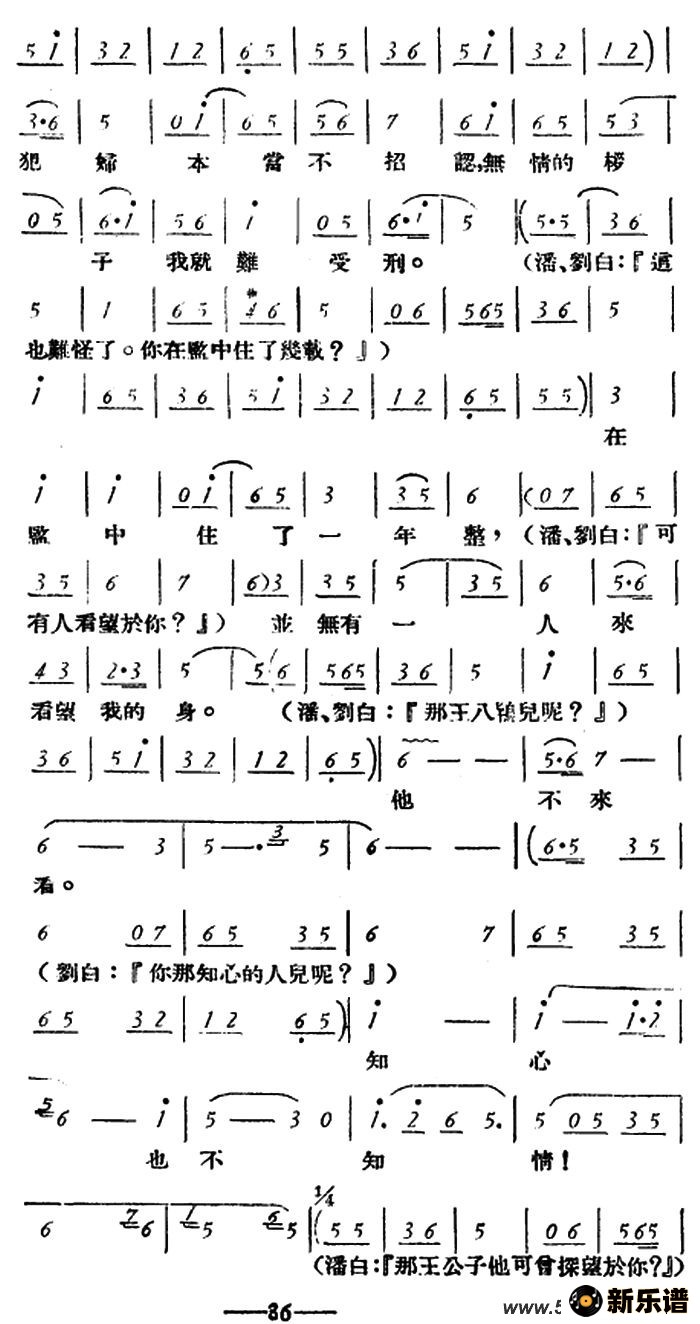 5 i | 3 2 | 1 2 | 6 5 | 5 5 | 3 6 | 5 i | 3 2 | 1 2 ) |
3·6 | 5 | 0 i | 6 5 | 5 6 | 7 | 6 i | 6 5 | 5 3
犯 婦 本 當 不 招 認,無 情的 桚
0 5 | 6·i | 5 6 | i | 0 5 | 6·i | 5 | (5·5 | 3 6
子 我就 難 受 刑。 (潘、劉白:『這
5 | 1 | 6 5 | #4 6 | 5 | 0 6 | 565 | 3 6 | 5
也難怪了。你在監中住了幾載?』)
i | 6 5 | 3 6 | 5 i | 3 2 | 1 2 | 6 5 | 5 5) | 3
在
i | i | 0 i | 6 5 | 3 | 3 5 | 6 | (0 7 | 6 5
監 中 住 了 一 年 整, (潘、劉白:『可
3 5 | 6 | 7 | 6)3 | 3 5 | 5 | 3 5 | 6 | 5·6
有人看望於你?』) 並 無有 一 人 來
4 3 | 2·3 | 5 | 5 (6 | 565 | 3 6 | 5 | i | 6 5
看望 我的 身。 (潘、劉白:『那王八鴇兒呢?』)
3 6 | 5 i | 3 2 | 1 2 | 6 5) | 6 — — | 5·6 7 —
他 不 來
6 — 3 | 5 —· 3 5 | 6 — — — | (6·5 3 5
看。
6 0 7 | 6 5 3 5 | 6 7 | 6 5 3 5
(劉白:『你那知心的人兒呢?』)
6 5 3 2 | 1 2 6 5) | i — | i — i·2
知 心
5 6 — i | 5 — 3 0 | i. 2 6 5. | 5 0 5 3 5
也 不 知 情!
6 7 6 | 1 5 6 5 | 1/4 (5 5 | 3 6 | 5 | 0 6 | 565
(潘白:『那王公子他可曾探望於你?』)
—86—
www.5
新乐谱